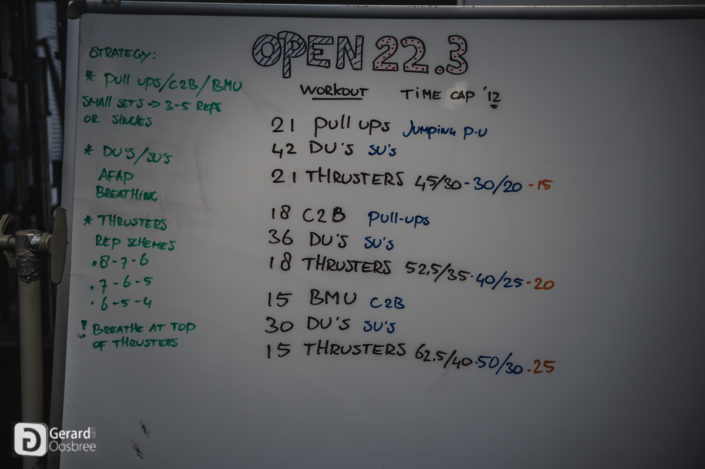 OPEN 22.3
STRATEGY:
* PULL UPS/C2B/BMU
SMALL SETS → 3-5 REPS
OR SINGLES
* DU'S/SU'S
AFAP
BREATHING
* THRUSTERS
REP SCHEMES
• 8-7-6
• 7-6-5
• 6-5-4
! BREATHE AT TOP
OF THRUSTERS
WORKOUT TIME CAP '12
21 PULL UPS JUMPING P-U
42 DU'S SU'S
21 THRUSTERS 45/30-30/20-15
18 C2B PULL-UPS
36 DU'S SU'S
18 THRUSTERS 52.5/35-40/25-20
15 BMU C2B
30 DU'S SU'S
15 THRUSTERS 62.5/40-50/30-25
Gerard
Oosbree